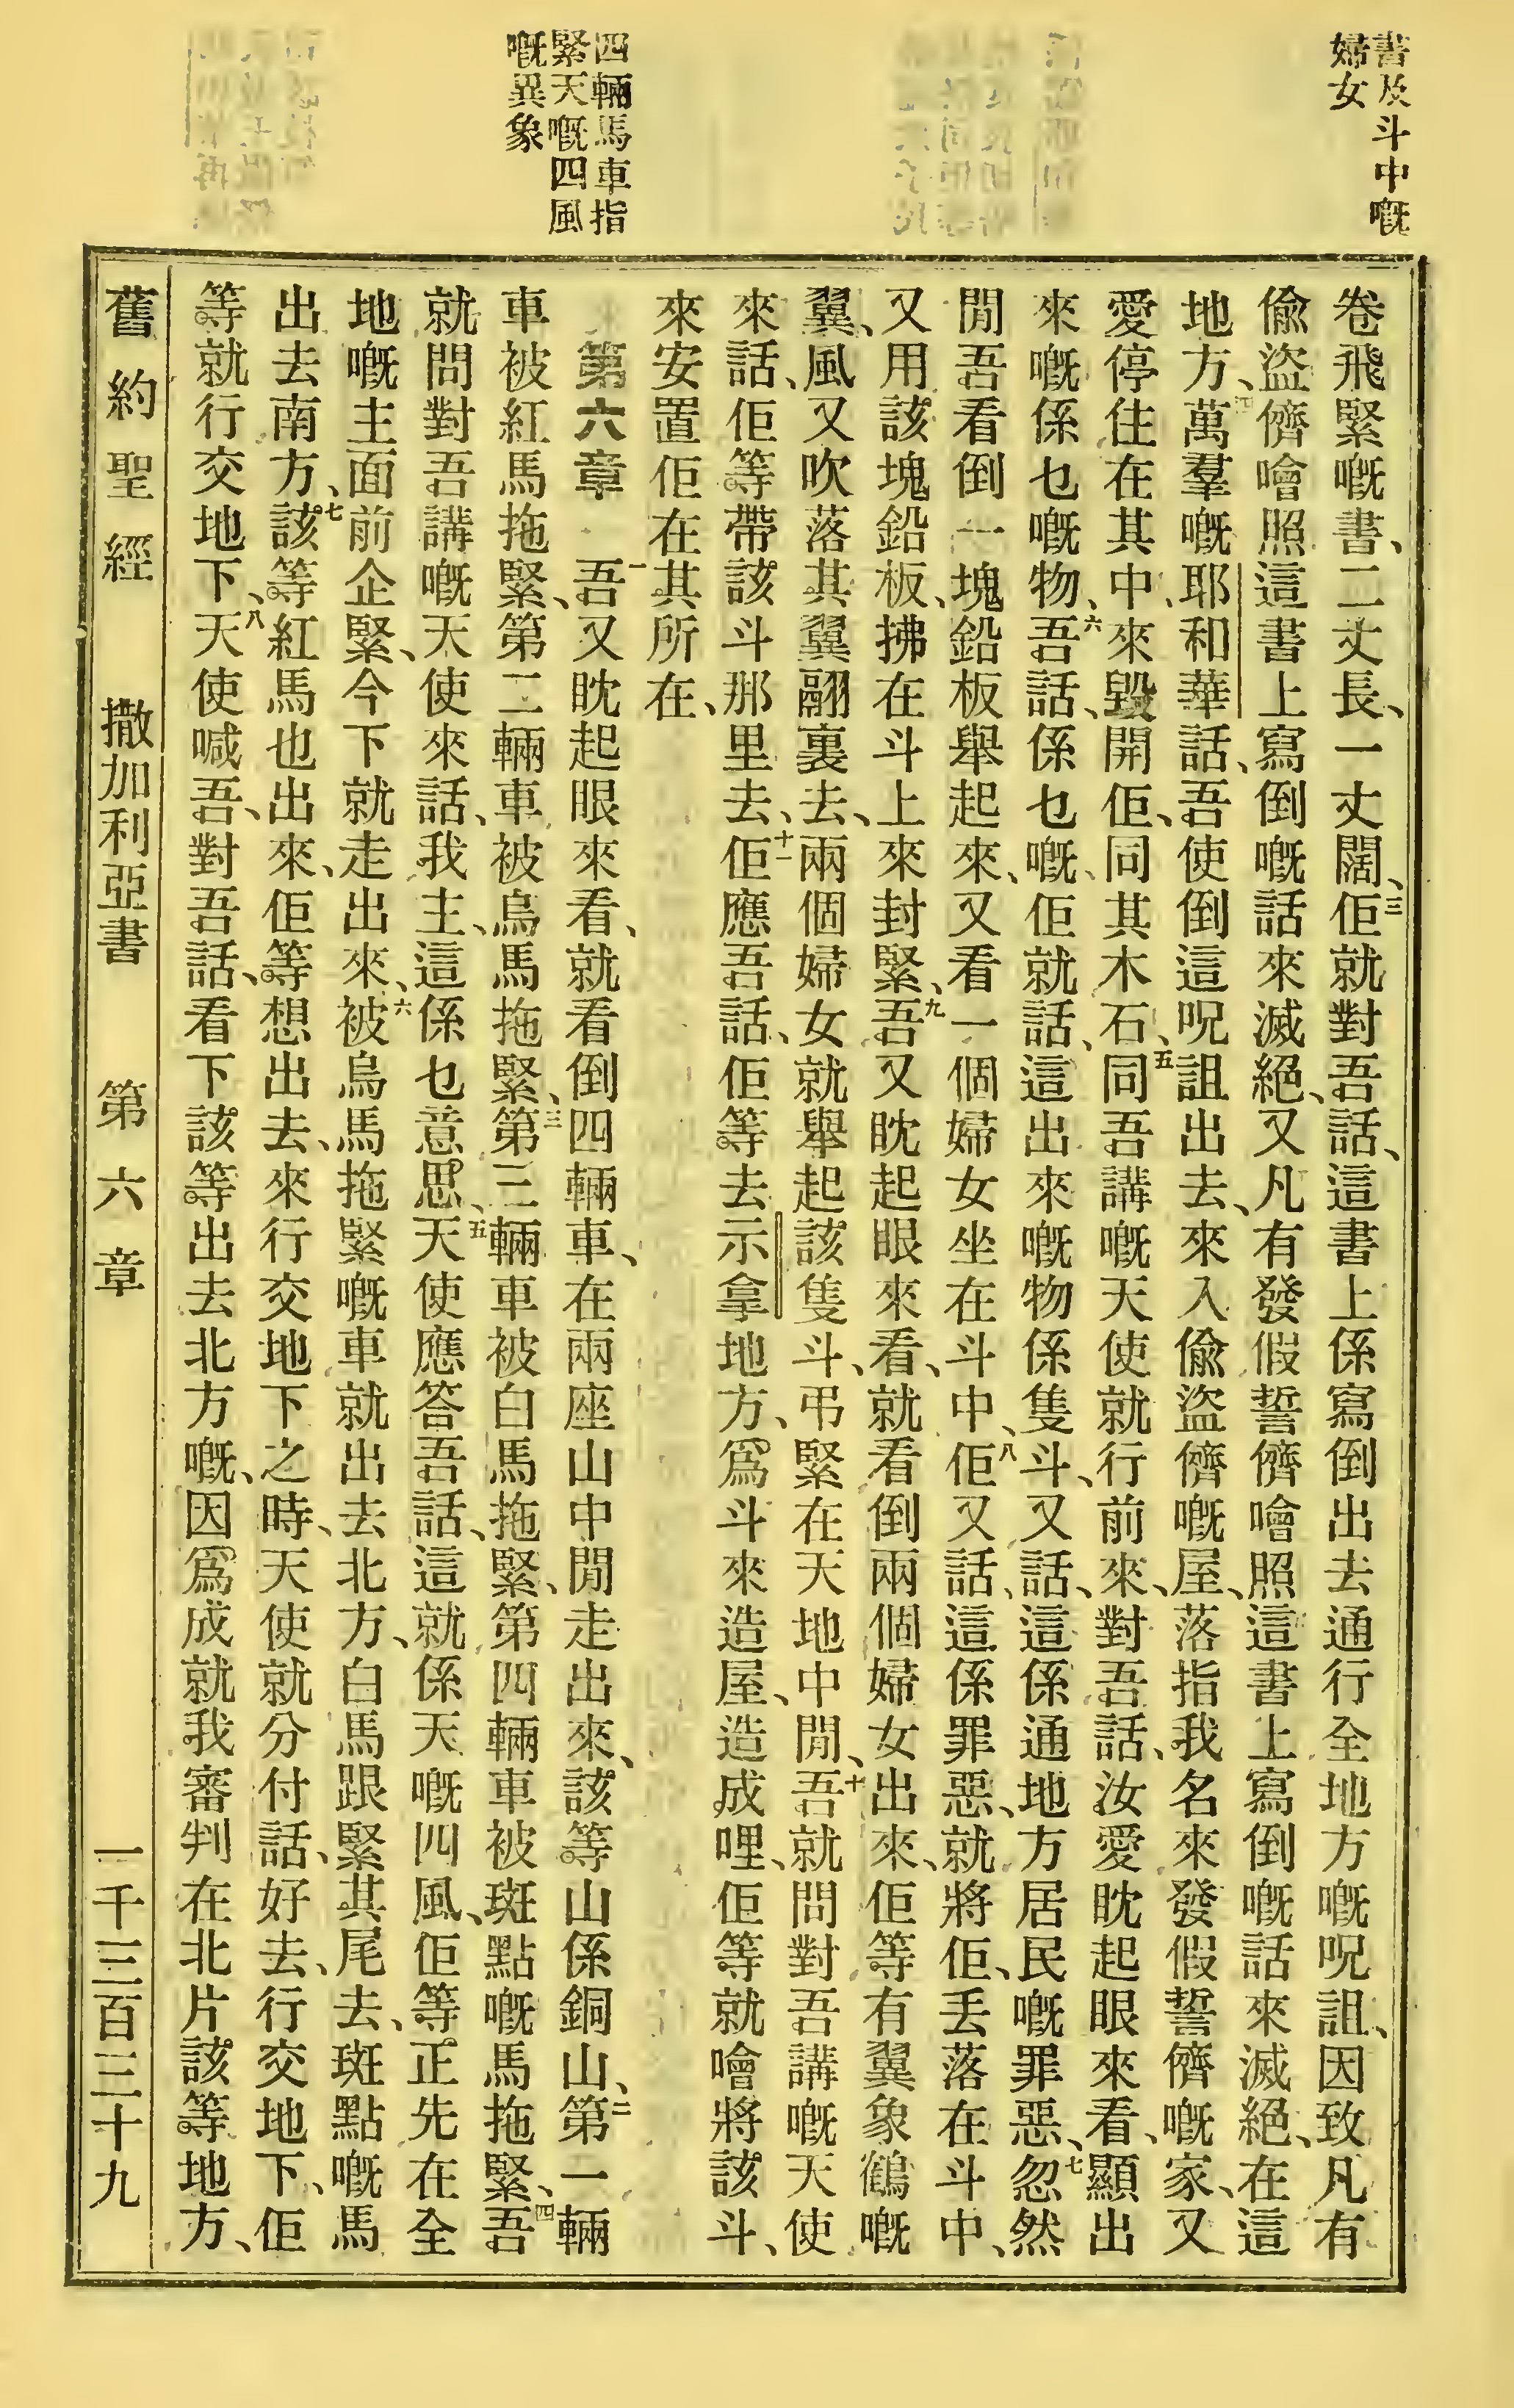 書及斗中嘅
婦女
四輛馬車指
緊天嘅四風
嘅異象
卷飛緊嘅書、二丈長、一丈闊、三佢就對吾話、這書上係寫倒出去通行全地方嘅呪詛、因致凡有
偷盜儕噲照這書上寫倒嘅話來滅絕、又凡有發假誓儕噲照這書上寫倒嘅話來滅絕、在這
地方、四萬羣嘅耶和華話、吾使倒這呪詛出去、來入偷盜儕嘅屋、落指我名來發假誓儕嘅家、又
愛停住在其中、來毀開佢、同其木石、五同吾講嘅天使就行前來、對吾話、汝愛眈起眼來看、顯出
來嘅係乜嘅物、六吾話、係乜嘅、佢就話、這出來嘅物係隻斗、又話、這係通地方居民嘅罪惡、七忽然
閒吾看倒一塊鉛板舉起來、又看一個婦女坐在斗中、八佢又話、這係罪惡、就將佢、丟落在斗中、
又用該塊鉛板、拂在斗上來封緊、九吾又眈起眼來看、就看倒兩個婦女出來、佢等有翼象鶴嘅
翼、風又吹落其翼翮裏去、兩個婦女就舉起該隻斗、弔緊在天地中閒、十吾就問對吾講嘅天使
來話、佢等帶該斗那里去、十一佢應吾話、佢等去示拿地方、爲斗來造屋、造成哩、佢等就噲將該斗、
來安置佢在其所在、
第六章 一吾又眈起眼來看、就看倒四輛車、在兩座山中閒走出來、該等山係銅山、二第一輛
車被紅馬拖緊、第二輛車被烏馬拖緊、三第三輛車被白馬拖緊、第四輛車被斑點嘅馬拖緊、四吾
就問對吾講嘅天使來話、我主、這係乜意思、五天使應答吾話、這就係天嘅四風、佢等正先在全
地嘅主面前企緊、今下就走出來、六被烏馬拖緊嘅車就出去北方、白馬跟緊其尾去、斑點嘅馬
出去南方、七該等紅馬也出來、佢等想出去、來行交地下之時、天使就分付話、好去、行交地下、佢
等就行交地下、八天使喊吾、對吾話、看下該等出去北方嘅、因爲成就我審判在北片該等地方、
舊約聖經 撒加利亞書 第六章 一千三百三十九